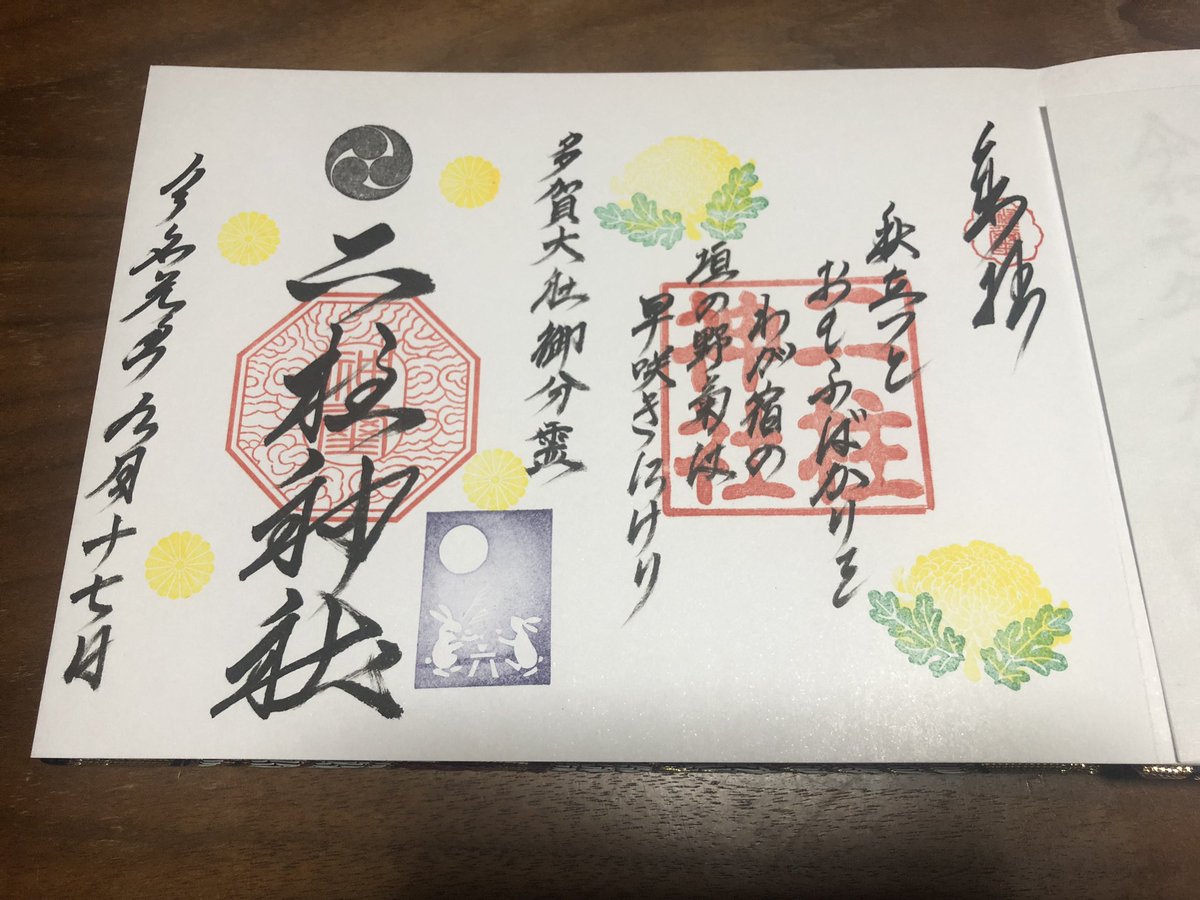 奉拝
秋立つと
おもふばかりを
わが宿の
垣の野菊は
早咲きにけり
二柱
神社
多賀大社御分霊
二柱神社
令和元年九月十七日